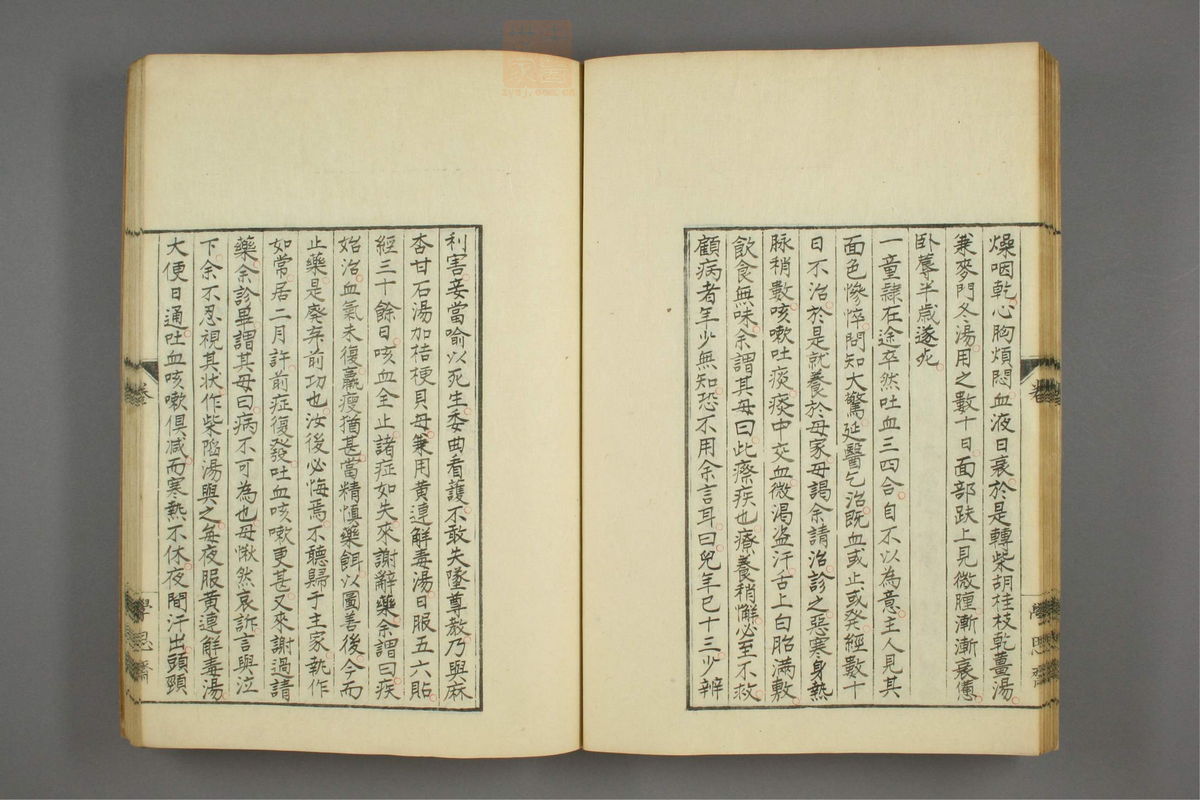 燥咽乾心胸煩悶血液日衰於是轉柴胡桂枝乾薑湯
兼麥門冬湯用之數十日面部趺上見微腫漸漸衰憊
臥蓐半歳遂死
一童隷在途卒然吐血三四合自不以為意主人見其
面色慘悴問知大驚延醫乞治既血或止或発經數十
日不治於是就養於母家母謁余請治診之惡寒身熱
脉稍數咳嗽吐痰痰中交血微渇盗汗舌上白胎滿敷
飲食無味余謂其母曰此瘵疾也療養稍懈必至不救
顧病者年少無知恐不用余言耳曰兒年已十三少辨
利害妾當喻以死生委曲看護不敢失墜尊教乃與麻
杏甘石湯加桔梗貝母兼用黄連解毒湯日服五六貼
經三十餘日咳血全止諸症如失來謝辭藥余謂曰疾
始治血氣未復羸瘦猶甚當精慎藥餌以圖善後今而
止藥是廃弃前功也汝後必悔焉不聽歸于主家執作
如常居二月許前症復發吐血咳嗽更甚又來謝過請
藥余診畢謂其母曰病不可為也母愀然哀訴言與泣
下余不忍視其状作柴陥湯與之毎夜服黄連解毒湯
大便日通吐血咳嗽倶减而寒熱不休夜間汗出頭頸
卷
學思齋
卷
學思齋